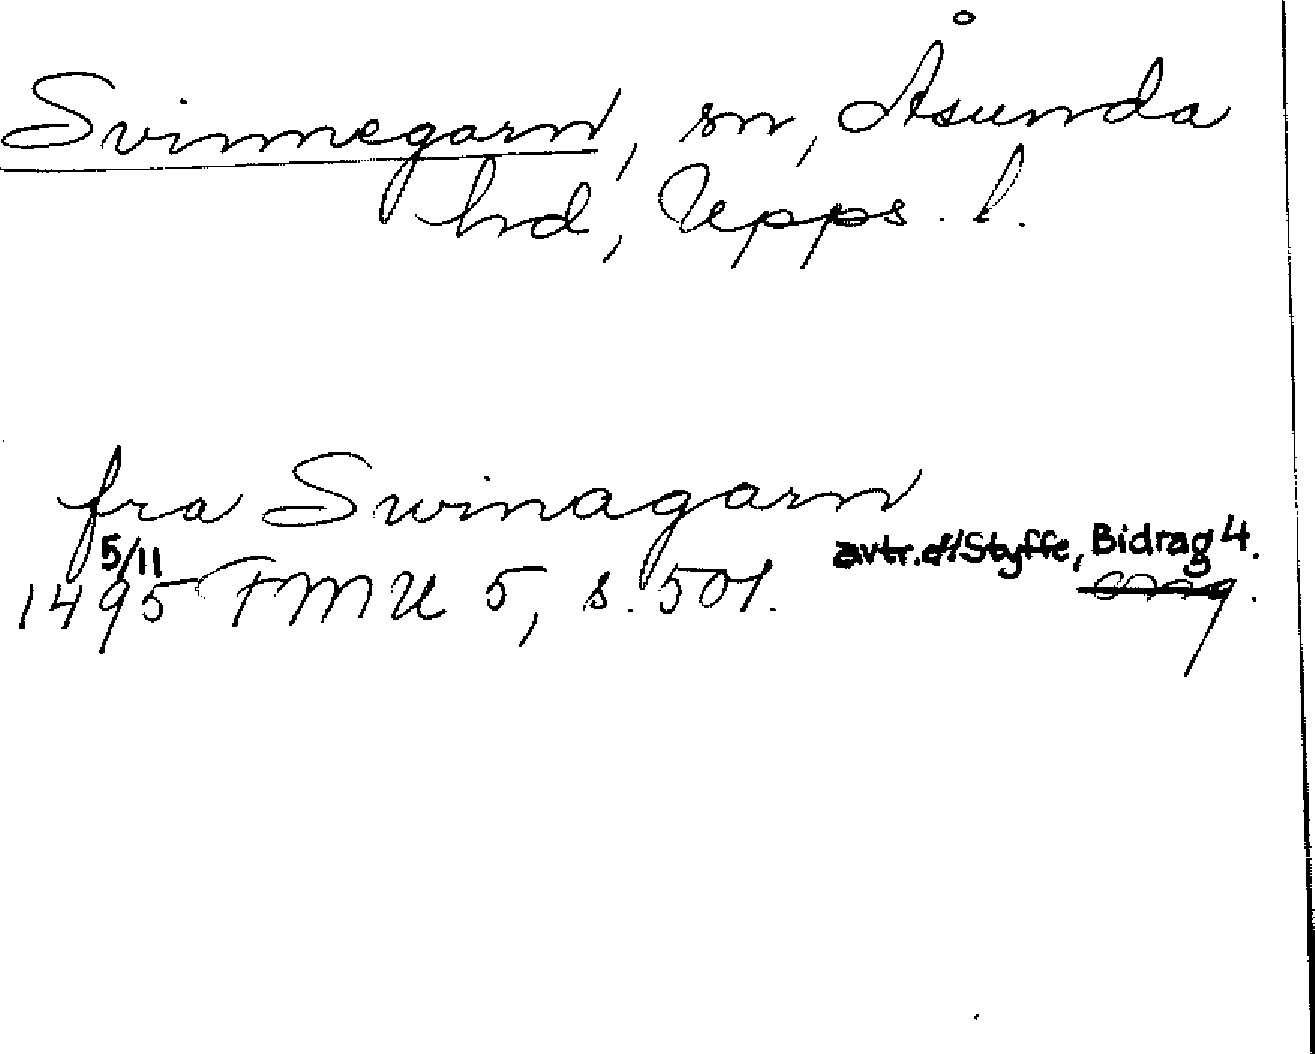 Svinnegarn, sn, Åsunda
hd, Upps. l.
fra Swinagarn
5/11 avtr. Styffe, Bidrag 4.
1495 FMU 5, s. 501.